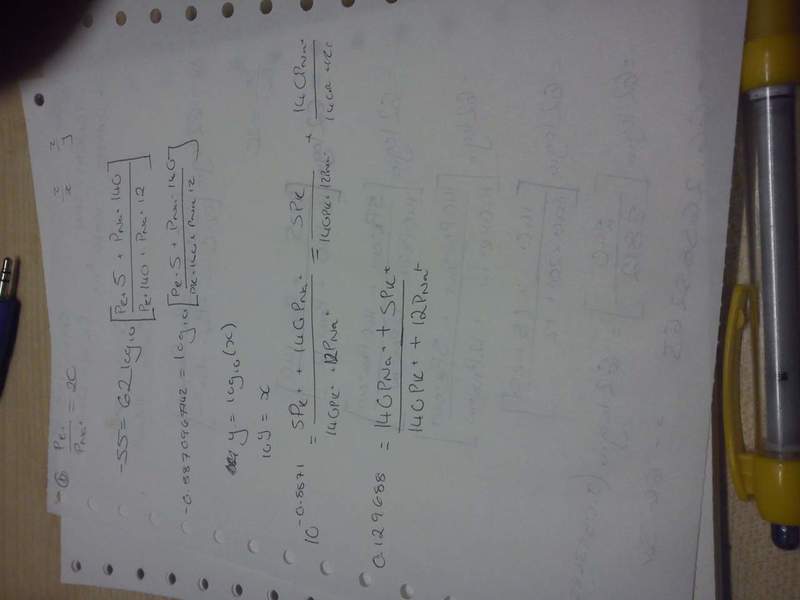 P_K+ / P_Na+ = 20
-55 = 62 log10 [ P_K+ 5 + P_Na+ 140 / P_K+ 140 + P_Na+ 12 ]
= log10 [ P_K+ 5 + P_Na+ 140 / P_K+ 140 + P_Na+ 12 ]
y = log10 (x)
10y = x
10 -0.8871 = 5P_K+ + 140P_Na+ / 140P_K+ + 12P_Na+ = 5P_K / 140P_K + 12P_Na+ + 140P_Na+
0.129688 = 140P_Na+ + 5P_K+ / 140P_K+ + 12P_Na+